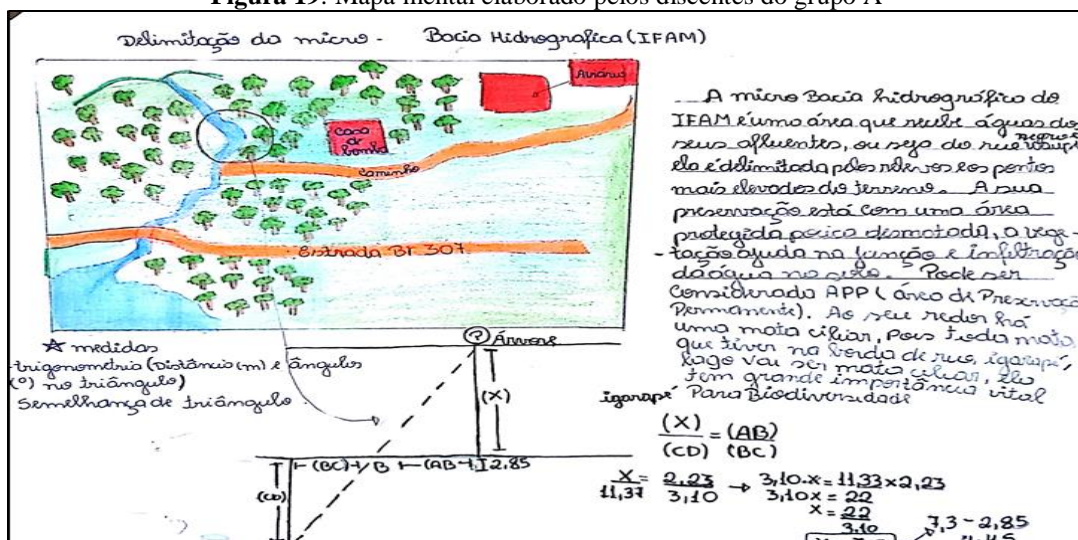 Figura 19: Mapa mental elaborado pelos discentes do grupo A
Delimitação da micro - Bacia Hidrografica (IFAM)
Aviário
Casa de bomba
caminho
Estrada Br 307
A micro Bacia hidrográfica do
IFAM é uma área que recebe águas dos
seus afluentes, ou seja do rio
negro
ela é delimitada pelos relevos e os pontos
mais elevados do terreno. A sua
preservação está com uma área
protegida pouco desmatada, a vege-
-tação ajuda na junção e infiltração
da água no solo. Pode ser
Considerada APP (área de Preservação
Permanente). Ao seu redor há
uma mata ciliar, pois toda mata
que tiver na borda de rio, igarapé,
lago vai ser mata ciliar, ela
tem grande importância vital
Para Biodiversidade
☆ medidas
-trigonometria (Distância (m) e ângulos
(°) no triângulo)
Semelhança de triângulo.
? Árvore
(X)
igarapé
(BC) B (AB) 2,85
(CD)
(X) = (AB)
(CD) (BC)
X = 2,23 → 3,10.x = 11,33 x 2,23
11,37 3,10 3,10x = 22
X = 22
3,10
7,3 - 2,85